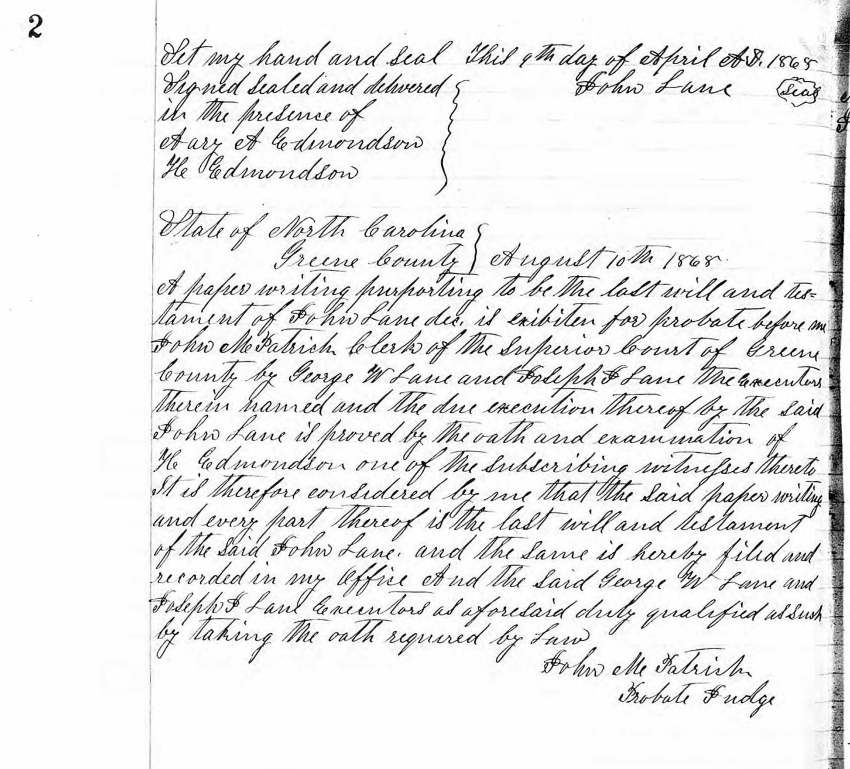 2
Set my hand and seal This 9th day of April A.D. 1868
Signed Sealed and delivered John Lane Seal
in the presence of
Mary A Edmondson
H Edmondson
State of North Carolina
Greene County August 10th 1868.
A paper writing purporting to be the last will and tes=
tament of John Lane dec, is exibiten for probate before me
John M Patrick Clerk of the Superior Court of Greene
County by George W Lane and Joseph J Lane the executors
therein named and the due execution thereof by the said
John Lane is proved by the oath and examination of
H Edmondson one of the subscribing witnesses thereto
It is therefore considered by me that the said paper writing
and every part thereof is the last will and testament
of the said John Lane. and the same is hereby filed and
recorded in my Office And the said George W Lane and
Joseph J Lane Executors as aforesaid duty qualified as such
by taking the oath required by Law
John M Patrick
Probate Judge